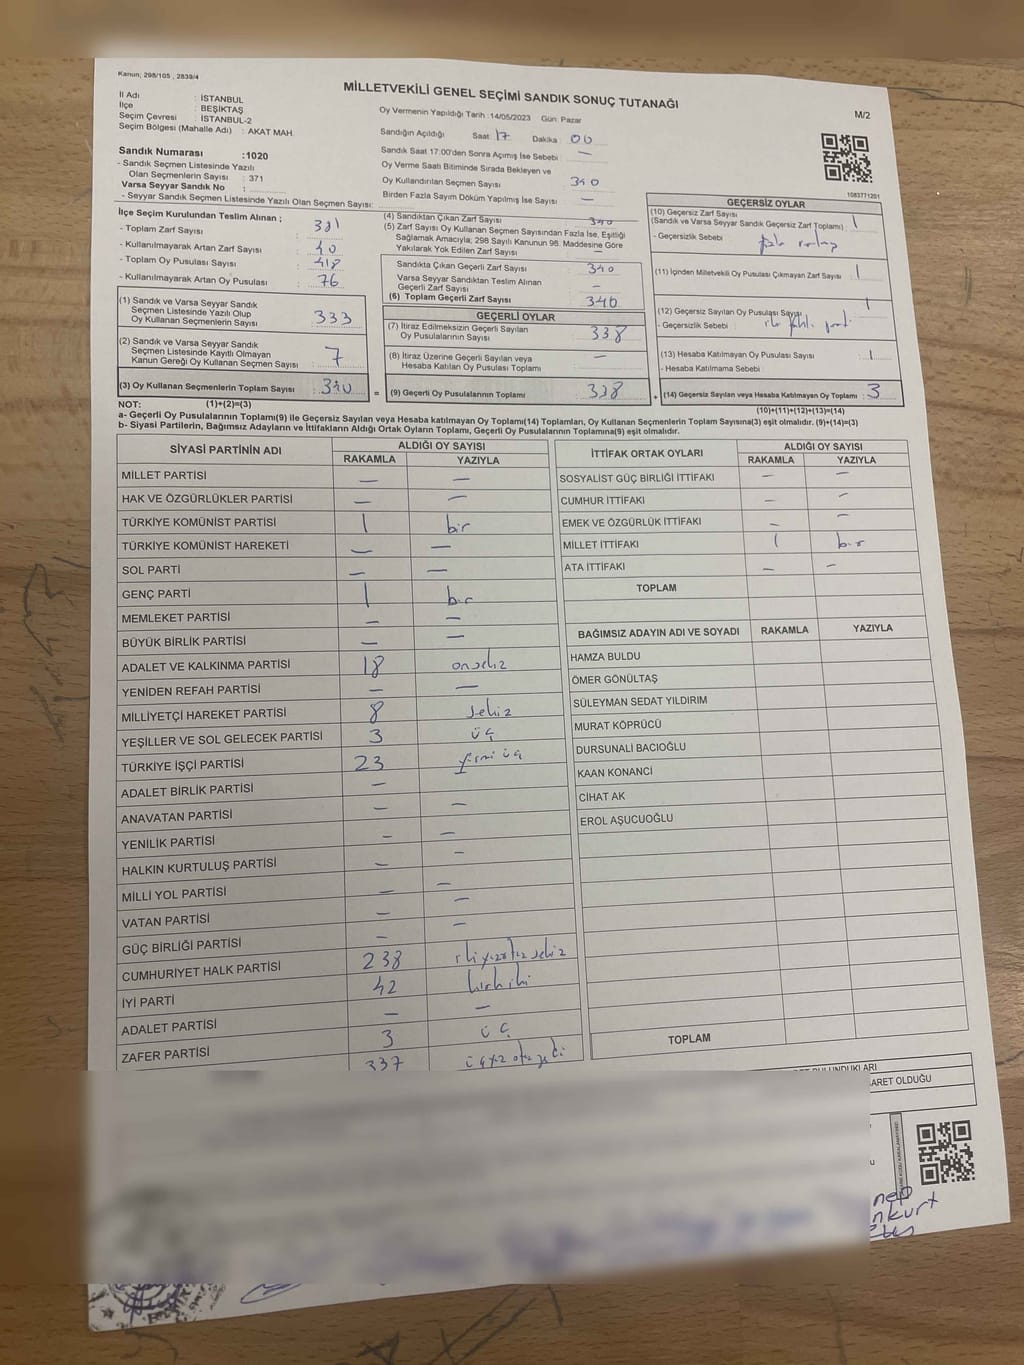 Kanun; 298/105 , 2839/4
MİLLETVEKİLİ GENEL SEÇİMİ SANDIK SONUÇ TUTANAĞI
M/2
İl Adı : İSTANBUL
İlçe : BEŞİKTAŞ
Seçim Çevresi : İSTANBUL-2
Seçim Bölgesi (Mahalle Adı) : AKAT MAH.
Oy Vermenin Yapıldığı Tarih :14/05/2023 Gün: Pazar
Sandığın Açıldığı Saat 17 Dakika : 00
Sandık Saat 17:00'den Sonra Açılmış İse Sebebi : —
Oy Verme Saati Bitiminde Sırada Bekleyen ve
Oy Kullandırılan Seçmen Sayısı : 340
Birden Fazla Sayım Döküm Yapılmış İse Sayısı : —
Sandık Numarası :1020
- Sandık Seçmen Listesinde Yazılı
Olan Seçmenlerin Sayısı : 371
Varsa Seyyar Sandık No :
- Seyyar Sandık Seçmen Listesinde Yazılı Olan Seçmen Sayısı:
1083771201
İlçe Seçim Kurulundan Teslim Alınan ;
- Toplam Zarf Sayısı : 381
- Kullanılmayarak Artan Zarf Sayısı : 40
- Toplam Oy Pusulası Sayısı : 418
- Kullanılmayarak Artan Oy Pusulası : 76
(1) Sandık ve Varsa Seyyar Sandık
Seçmen Listesinde Yazılı Olup
Oy Kullanan Seçmenlerin Sayısı : 333
(2) Sandık ve Varsa Seyyar Sandık
Seçmen Listesinde Kayıtlı Olmayan
Kanun Gereği Oy Kullanan Seçmen Sayısı : 7
(3) Oy Kullanan Seçmenlerin Toplam Sayısı : 340
(4) Sandıktan Çıkan Zarf Sayısı : 340
(5) Zarf Sayısı Oy Kullanan Seçmen Sayısından Fazla İse, Eşitliği
Sağlamak Amacıyla; 298 Sayılı Kanunun 98. Maddesine Göre
Yakılarak Yok Edilen Zarf Sayısı :
Sandıkta Çıkan Geçerli Zarf Sayısı : 340
Varsa Seyyar Sandıktan Teslim Alınan
Geçerli Zarf Sayısı : —
(6) Toplam Geçerli Zarf Sayısı : 340
GEÇERLİ OYLAR
(7) İtiraz Edilmeksizin Geçerli Sayılan
Oy Pusulalarının Sayısı : 338
(8) İtiraz Üzerine Geçerli Sayılan veya
Hesaba Katılan Oy Pusulası Toplamı : —
= (9) Geçerli Oy Pusulalarının Toplamı : 338
GEÇERSİZ OYLAR
(10) Geçersiz Zarf Sayısı
(Sandık ve Varsa Seyyar Sandık Geçersiz Zarf Toplamı) : 1
- Geçersizlik Sebebi :
(11) İçinden Milletvekili Oy Pusulası Çıkmayan Zarf Sayısı : 1
(12) Geçersiz Sayılan Oy Pusulası Sayısı : 1
- Geçersizlik Sebebi :
(13) Hesaba Katılmayan Oy Pusulası Sayısı : 1
- Hesaba Katılmama Sebebi :
+ (14) Geçersiz Sayılan veya Hesaba Katılmayan Oy Toplamı : 3
NOT: (1)+(2)=(3)
(10)+(11)+(12)+(13)=(14)
a- Geçerli Oy Pusulalarının Toplamı(9) ile Geçersiz Sayılan veya Hesaba katılmayan Oy Toplamı(14) Toplamları, Oy Kullanan Seçmenlerin Toplam Sayısına(3) eşit olmalıdır. (9)+(14)=(3)
b- Siyasi Partilerin, Bağımsız Adayların ve İttifakların Aldığı Ortak Oyların Toplamı, Geçerli Oy Pusulalarının Toplamına(9) eşit olmalıdır.
SİYASİ PARTİNİN ADI ALDIĞI OY SAYISI
RAKAMLA YAZIYLA
MİLLET PARTİSİ — —
HAK VE ÖZGÜRLÜKLER PARTİSİ — —
TÜRKİYE KOMÜNİST PARTİSİ 1 bir
TÜRKİYE KOMÜNİST HAREKETİ — —
SOL PARTİ — —
GENÇ PARTİ 1 bir
MEMLEKET PARTİSİ — —
BÜYÜK BİRLİK PARTİSİ — —
ADALET VE KALKINMA PARTİSİ 18 onsekiz
YENİDEN REFAH PARTİSİ — —
MİLLİYETÇİ HAREKET PARTİSİ 8 sekiz
YEŞİLLER VE SOL GELECEK PARTİSİ 3 üç
TÜRKİYE İŞÇİ PARTİSİ 23 yirmi üç
ADALET BİRLİK PARTİSİ —
ANAVATAN PARTİSİ — —
YENİLİK PARTİSİ — —
HALKIN KURTULUŞ PARTİSİ — —
MİLLİ YOL PARTİSİ — —
VATAN PARTİSİ — —
GÜÇ BİRLİĞİ PARTİSİ — —
CUMHURİYET HALK PARTİSİ 238 ikiyüzotuzsekiz
İYİ PARTİ 42 kırkiki
ADALET PARTİSİ — —
ZAFER PARTİSİ 3 üç
337 üçyüzotuzyedi
İTTİFAK ORTAK OYLARI ALDIĞI OY SAYISI
RAKAMLA YAZIYLA
SOSYALİST GÜÇ BİRLİĞİ İTTİFAKI — —
CUMHUR İTTİFAKI — —
EMEK VE ÖZGÜRLÜK İTTİFAKI — —
MİLLET İTTİFAKI 1 bir
ATA İTTİFAKI — —
TOPLAM
BAĞIMSIZ ADAYIN ADI VE SOYADI RAKAMLA YAZIYLA
HAMZA BULDU
ÖMER GÖNÜLTAŞ
SÜLEYMAN SEDAT YILDIRIM
MURAT KÖPRÜCÜ
DURSUNALİ BACIOĞLU
KAAN KONANCİ
CİHAT AK
EROL AŞUCUOĞLU
TOPLAM
ARET OLDUĞU
nep
nkurt